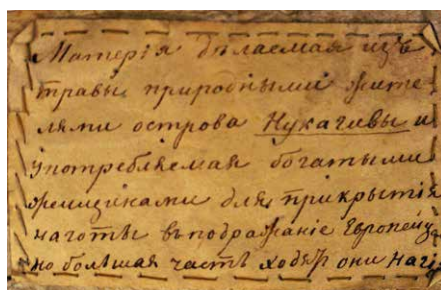 Матерія дѣлаемая изъ
травы природными жите-
лями острова Нукагивы и
употребляемая богатыми
женщинами для прикрытія
наготы въ подражаніе Европейц
но большая часть ходятъ они наги